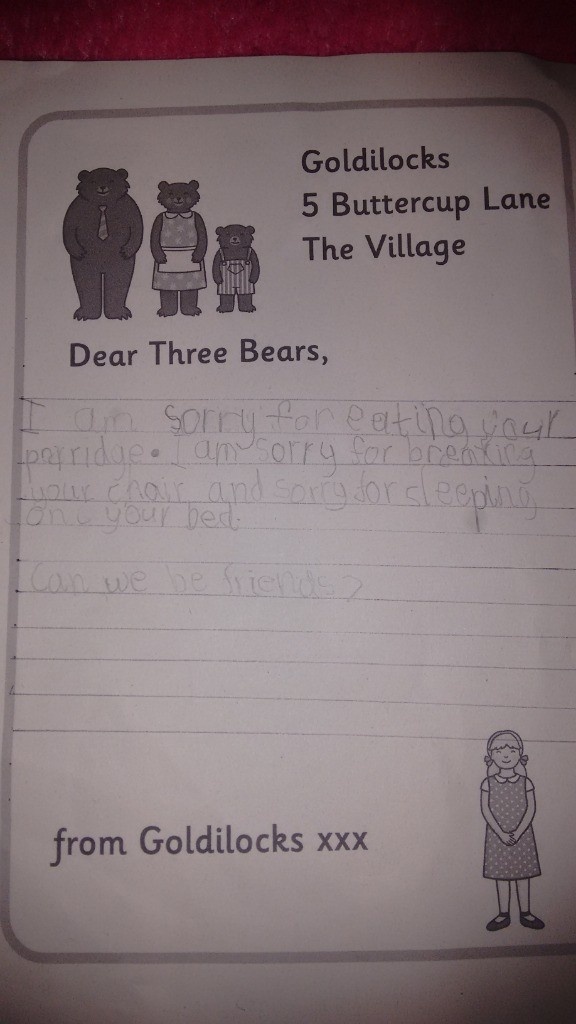 Goldilocks
5 Buttercup Lane
The Village
Dear Three Bears,
I am sorry for eating your
porridge. I am sorry for breaking
your chair and sorry for sleeping
on your bed.
Can we be friends?
from Goldilocks xxx